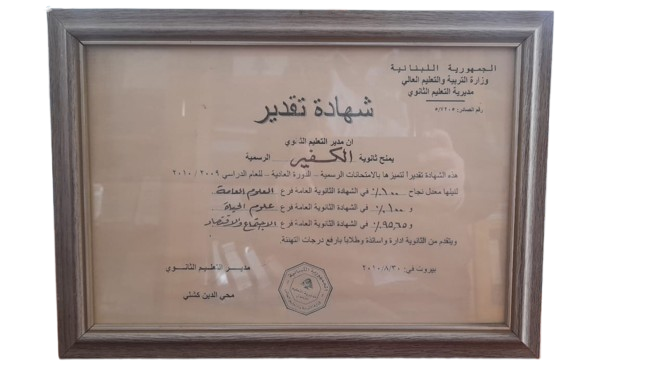 الجمهورية اللبنانية
وزارة التربية والتعليم العالي
مديرية التعليم الثانوي
رقم الصادر: ٥/٢٢٠٥
شهادة تقدير
ان مدير التعليم الثانوي
يمنح ثانوية الكفير الرسمية
هذه الشهادة تقديراً لتميزها بالامتحانات الرسمية - الدورة العادية - للعام الدراسي ٢٠٠٩ / ٢٠١٠
لنيلها معدل نجاح ١٠٠٪ في الشهادة الثانوية العامة فرع العلوم العامة
و ١٠٠٪ في الشهادة الثانوية العامة فرع علوم الحياة
و ٩٥,٦٥٪ في الشهادة الثانوية العامة فرع الاجتماع والاقتصاد
ويتقدم من الثانوية ادارة واساتذة وطلاباً بارفع درجات التهنئة.
بيروت في: ٢٠١٠/٨/٣٠
مدير التعليم الثانوي
محي الدين كشلي